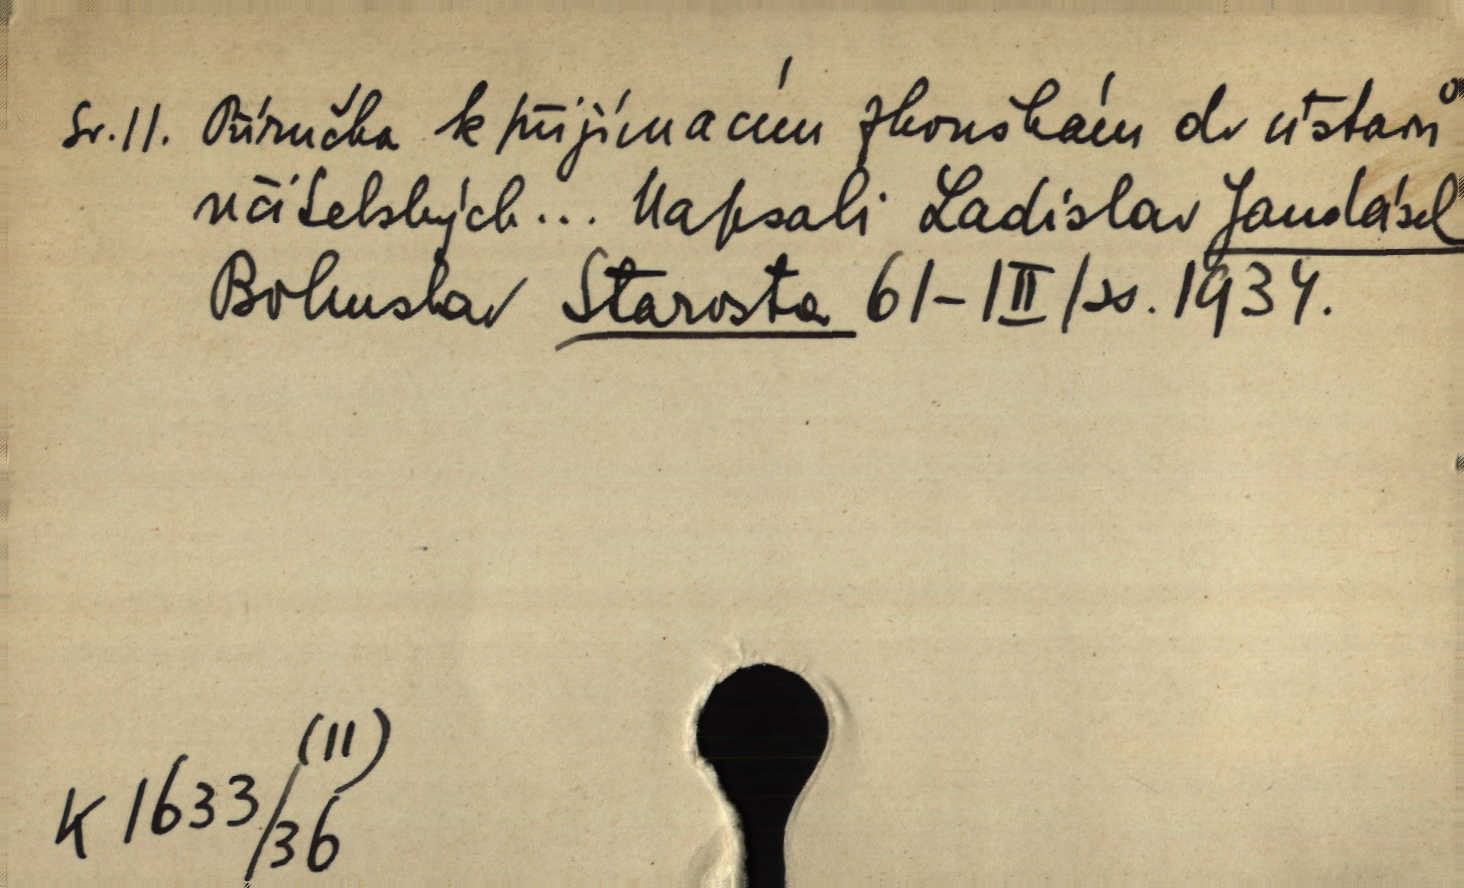 Sv. 11. Příručka k přijímacím zkouškám do ústavů
učitelských... Napsali Ladislav Jandásek
Bohuslav Starosta 61-1II/ss. 1934.
(11)
K 1633/36